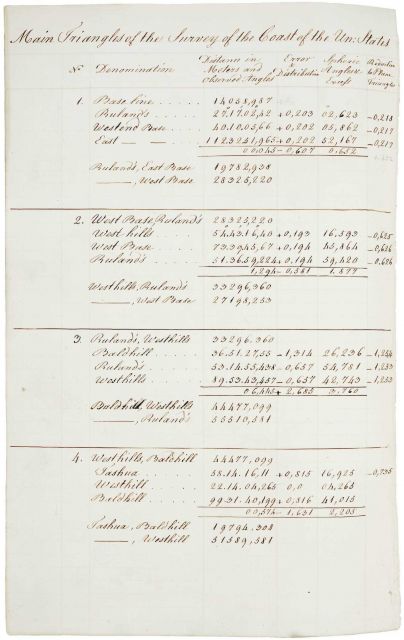 Main Triangles of the Survey of the Coast of the Un: States
No Denomination Distanc in Meters and Observed Angles Error & Distribution Spheric Angles & Excess Reduction to Plane Triangles
1. Base line 14058,987
Ruland's 27.17.02,42 +0,203 02,623 -0,218
Westend Base 40.10.05,66 +0,202 05,862 -0,217
East — — 112.32.51,965 +0,202 52,167 -0,217
0.0,045 -0,607 0,652
Rulands, East Base 19782,938
——, West Base 28325,220
2. West Base, Ruland's 28325,220
West hills 54.43.16,40 +0,193 16,593 -0,625
West Base 73.39.45,67 +0,194 45,864 -0,626
Ruland's 51.36.59,224 +0,194 59,420 -0,626
1,294 -0,581 1,877
Westhills, Ruland's 33296,360
——, West Base 27198,253
3. Ruland's, Westhills 33296,360
Baldhill 36.51.27,55 -1,314 26,236 -1,254
Ruland's 53.14.55,438 -0,657 54,781 -1,253
Westhills 89.53.43,457 -0,657 42,743 -1,253
0.6,445 + 2,685 3,760
Baldhill, Westhills 44477,099
——, Ruland's 55510,581
4. Westhills, Baldhill 44477,099
Tashua 58.14.16,11 +0,815 16,925 -0,735
Westhill 22.14.04,265 0,0 04,265
Baldhill 99.31.40,199 +0,816 41,015
0.0,574 - 1,631 2,205
Tashua, Baldhill 19794,308
——, Westhill 51589,581